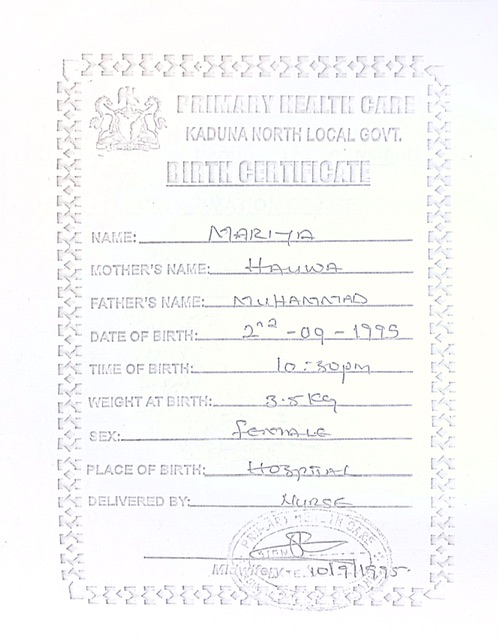 PRIMARY HEALTH CARE
KADUNA NORTH LOCAL GOVT.
BIRTH CERTIFICATE
NAME: MARIYA
MOTHER'S NAME: HAUWA
FATHER'S NAME: MUHAMMAD
DATE OF BIRTH: 2nd - 09 - 1995
TIME OF BIRTH: 10:30pm
WEIGHT AT BIRTH: 3.5Kg
SEX: FEMALE
PLACE OF BIRTH: HOSPITAL
DELIVERED BY: NURSE
PRIMARY HEALTH CARE
SIGN
10/9/1995